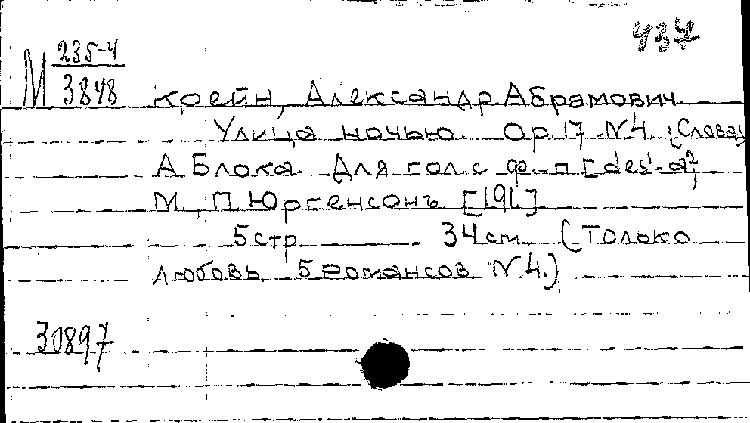 437
М 235-4
3848
Крейн, Александр Абрамович.
Улица ночью. Op. 17 N4. (Слова
А. Блока. Для гол. с ф.-п. [des¹-a²]
М., П. Юргенсонъ [191]
5 стр. 34 см. (Только
любовь. 5 романсов N4.)
30897